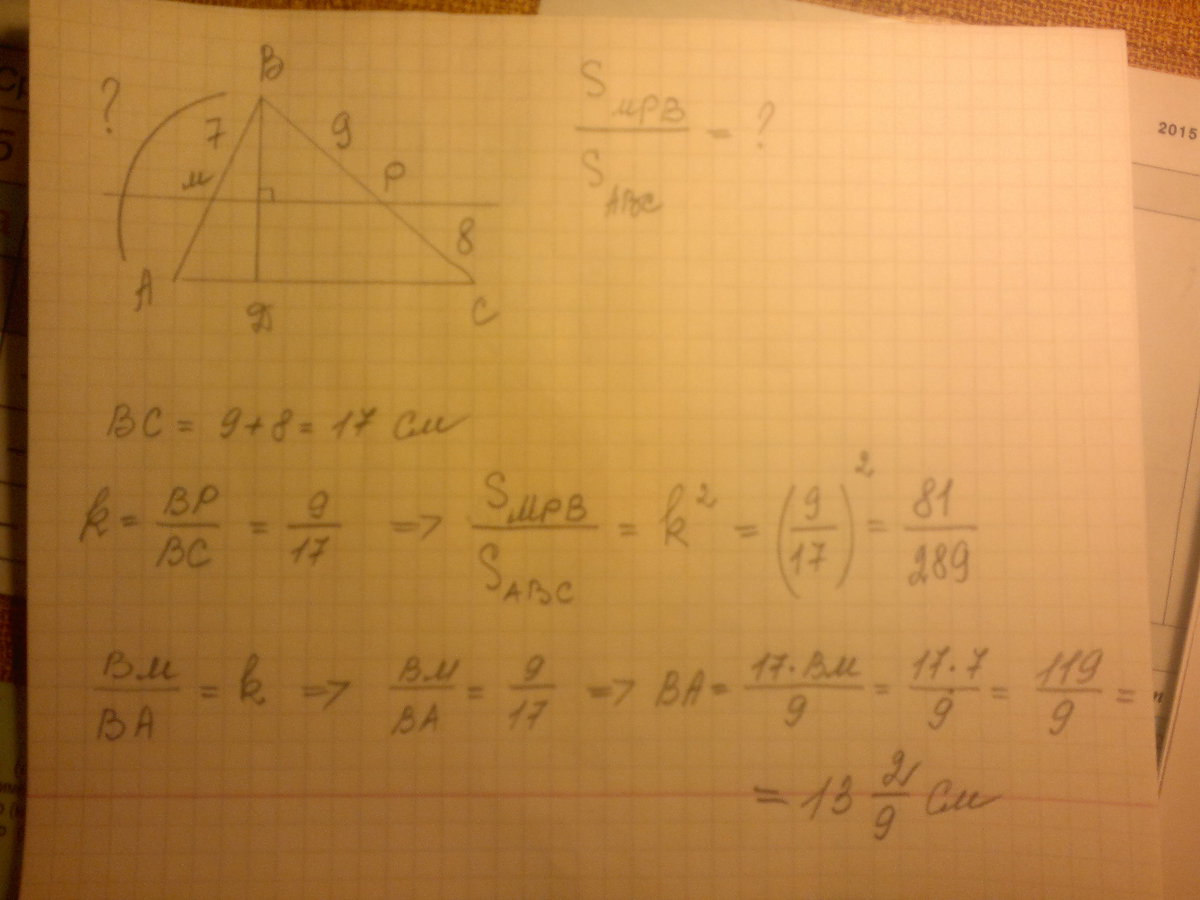 B
?
7
9
м
P
8
A
Д
C
S_MPB / S_ABC = ?
2015
Ср
5
BC = 9 + 8 = 17 см
k = BP/BC = 9/17 => S_MPB/S_ABC = k² = (9/17)² = 81/289
BM/BA = k => BM/BA = 9/17 => BA = 17·BM/9 = 17·7/9 = 119/9 =
= 13 2/9 см